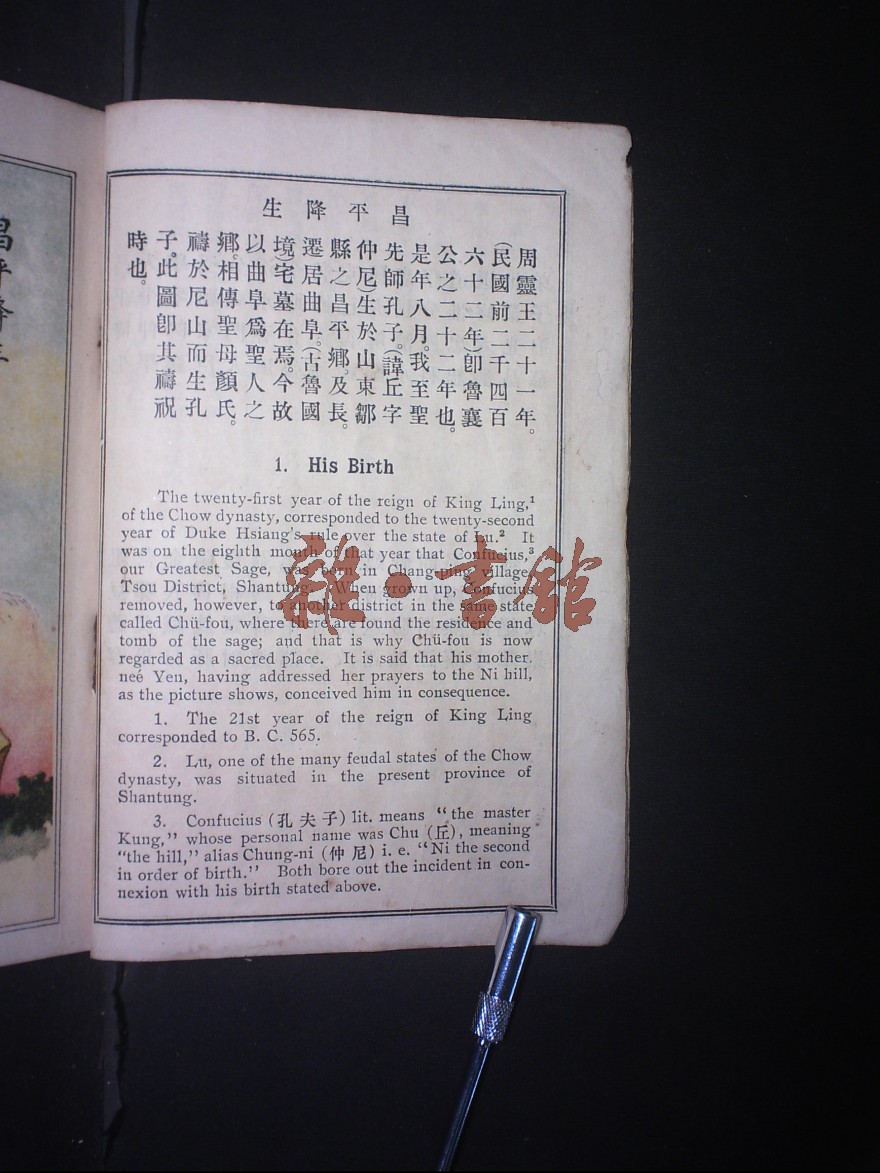 昌平降生
周靈王二十一年。
(民國前二千四百
六十二年)卽魯襄
公之二十二年也。
是年八月。我至聖
先師孔子。(諱丘字
仲尼)生於山東鄒
縣之昌平鄉。及長。
遷居曲阜。(古魯國
境)宅墓在焉。今故
以曲阜爲聖人之
鄉。相傳聖母顏氏。
禱於尼山而生孔
子。此圖卽其禱祝
時也。
1. His Birth
The twenty-first year of the reign of King Ling,¹
of the Chow dynasty, corresponded to the twenty-second
year of Duke Hsiang's rule over the state of Lu.² It
was on the eighth month of that year that Confucius,³
our Greatest Sage, was born in Chang-ping village,
Tsou District, Shantung. When grown up, Confucius
removed, however, to another district in the same state
called Chü-fou, where there are found the residence and
tomb of the sage; and that is why Chü-fou is now
regarded as a sacred place. It is said that his mother,
neé Yen, having addressed her prayers to the Ni hill,
as the picture shows, conceived him in consequence.
1. The 21st year of the reign of King Ling
corresponded to B. C. 565.
2. Lu, one of the many feudal states of the Chow
dynasty, was situated in the present province of
Shantung.
3. Confucius (孔夫子) lit. means "the master
Kung," whose personal name was Chu (丘), meaning
"the hill," alias Chung-ni (仲尼) i. e. "Ni the second
in order of birth." Both bore out the incident in con-
nexion with his birth stated above.
雜·書館